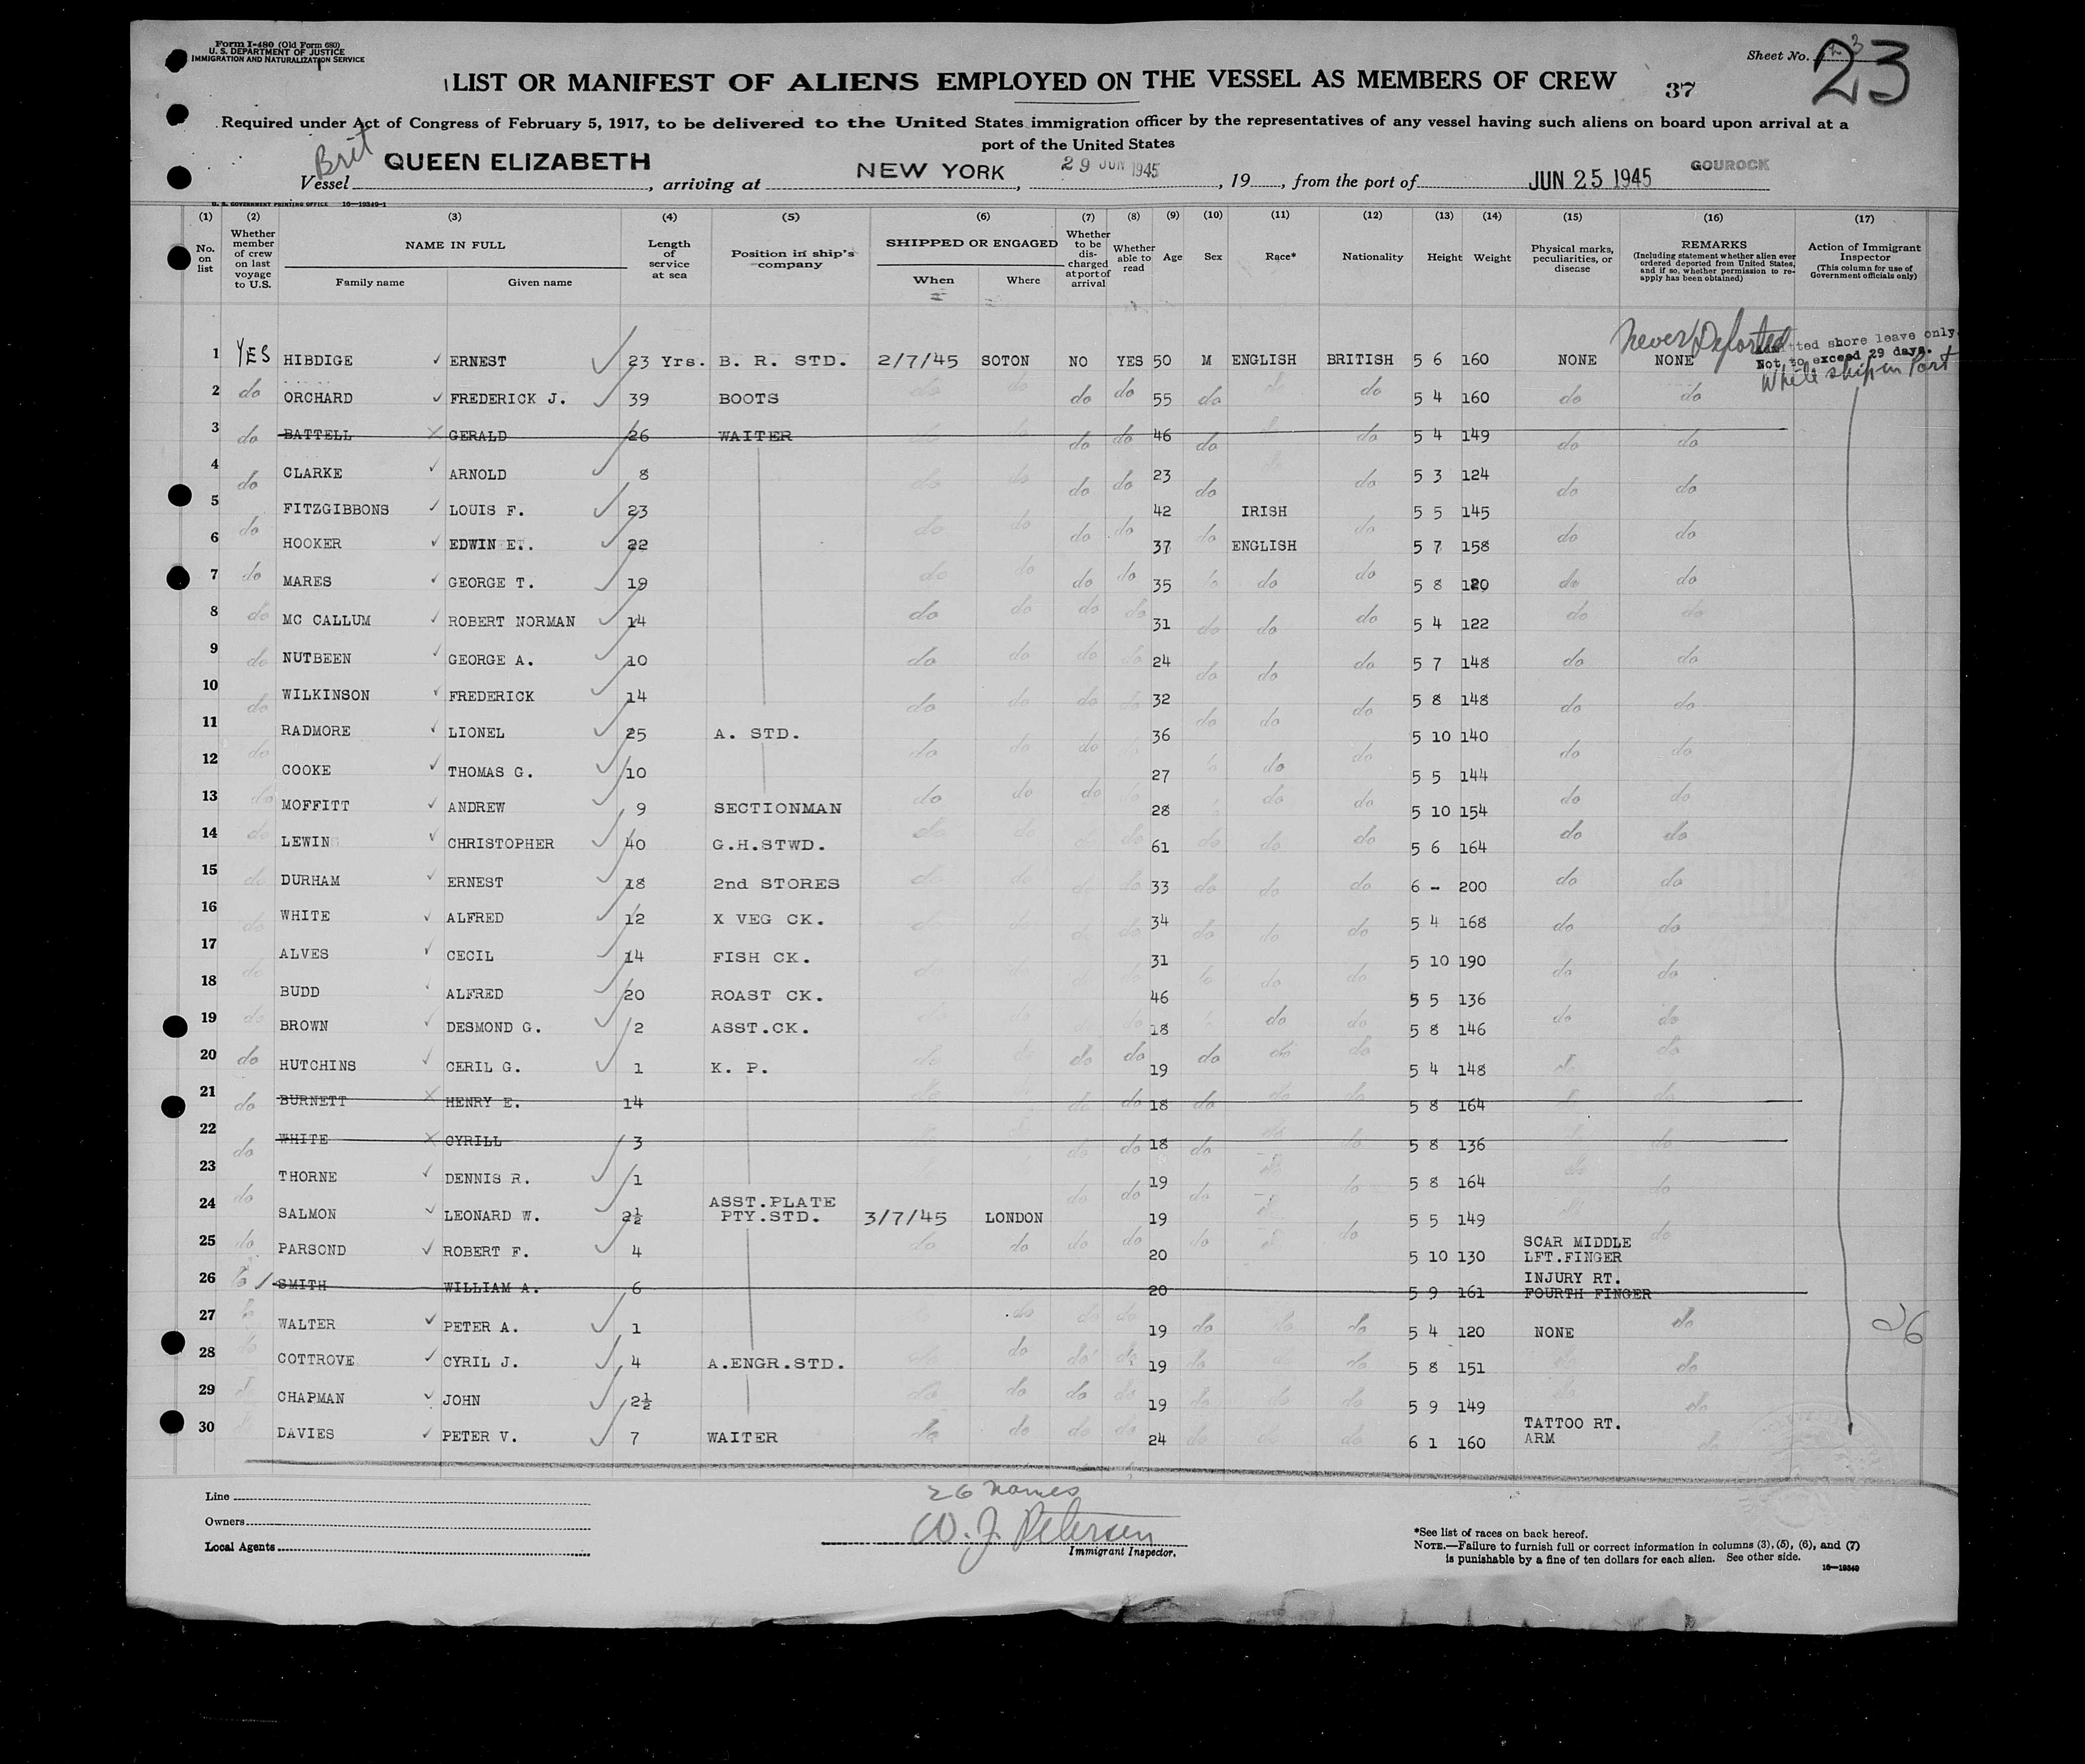 Form I-480 (Old Form 680)
U. S. DEPARTMENT OF JUSTICE
IMMIGRATION AND NATURALIZATION SERVICE
Sheet No.
23
LIST OR MANIFEST OF ALIENS EMPLOYED ON THE VESSEL AS MEMBERS OF CREW 37
Required under Act of Congress of February 5, 1917, to be delivered to the United States immigration officer by the representatives of any vessel having such aliens on board upon arrival at a
port of the United States
Brit
Vessel QUEEN ELIZABETH, arriving at NEW YORK, 29 JUN 1945, 19, from the port of JUN 25 1945 GOUROCK
U. S. GOVERNMENT PRINTING OFFICE 16—19349-1
(1) (2) (3) (4) (5) (6) (7) (8) (9) (10) (11) (12) (13) (14) (15) (16) (17)
No. on list
Whether member of crew on last voyage to U.S.
NAME IN FULL
Family name Given name
Length of service at sea
Position in ship's company
SHIPPED OR ENGAGED
When Where
Whether to be discharged at port of arrival
Whether able to read
Age Sex Race* Nationality Height Weight
Physical marks, peculiarities, or disease
REMARKS
(Including statement whether alien ever ordered deported from United States, and if so, whether permission to reapply has been obtained)
Action of Immigrant Inspector
(This column for use of Government officials only)
Never Deported
Admitted shore leave only.
Not to exceed 29 days.
While ship in Port
1 YES HIBDIGE ERNEST 23 Yrs. B. R. STD. 2/7/45 SOTON NO YES 50 M ENGLISH BRITISH 5 6 160 NONE NONE
2 do ORCHARD FREDERICK J. 39 BOOTS do do do do 55 do do 5 4 160 do do
3 do BATTELL GERALD 26 WAITER do do do do 46 do do 5 4 149 do do
4 do CLARKE ARNOLD 8 do do do do 23 do do 5 3 124 do do
5 do FITZGIBBONS LOUIS F. 23 do do do do 42 do IRISH do 5 5 145 do do
6 HOOKER EDWIN E. 22 37 ENGLISH 5 7 158
7 do MARES GEORGE T. 19 do do do do 35 do do 5 8 120 do do
8 do MC CALLUM ROBERT NORMAN 14 do do do do 31 do do do 5 4 122 do do
9 do NUTBEEN GEORGE A. 10 do do do do 24 do do do 5 7 148 do do
10 do WILKINSON FREDERICK 14 do do do do 32 do do do 5 8 148 do do
11 do RADMORE LIONEL 25 A. STD. do do do 36 do do 5 10 140 do do
12 COOKE THOMAS G. 10 27 do 5 5 144
13 do MOFFITT ANDREW 9 SECTIONMAN do do do do 28 do do 5 10 154 do do
14 do LEWIN CHRISTOPHER 40 G.H.STWD. do do do do 61 do do do 5 6 164 do do
15 do DURHAM ERNEST 18 2nd STORES do do do do 33 do do do 6 - 200 do do
16 do WHITE ALFRED 12 X VEG CK. do do do do 34 do do do 5 4 168 do do
17 do ALVES CECIL 14 FISH CK. do do do do 31 do do 5 10 190 do do
18 BUDD ALFRED 20 ROAST CK. 46 5 5 136
19 do BROWN DESMOND G. 2 ASST.CK. do do do do 18 do do 5 8 146 do do
20 do HUTCHINS CERIL G. 1 K. P. do do do do 19 do do do 5 4 148 do
21 do BURNETT HENRY E. 14 do do 18 do do do 5 8 164 do
22 do WHITE CYRILL 3 do do 18 do do do 5 8 136 do
23 THORNE DENNIS R. 1 19 5 8 164
24 do SALMON LEONARD W. 2½ ASST.PLATE PTY.STD. 3/7/45 LONDON do do 19 do do 5 5 149 do
25 do PARSOND ROBERT F. 4 do do do do 20 do do 5 10 130 SCAR MIDDLE LFT.FINGER do
26 SMITH WILLIAM A. 6 20 5 9 161 INJURY RT. FOURTH FINGER
27 WALTER PETER A. 1 do do do 19 do do do 5 4 120 NONE do
26
28 do COTTROVE CYRIL J. 4 A.ENGR.STD. do do do 19 do do do 5 8 151 do do
29 CHAPMAN JOHN 2½ do do do do 19 do do do 5 9 149 do do
30 DAVIES PETER V. 7 WAITER do do do do 24 do do do 6 1 160 TATTOO RT. ARM do
26 names
Line
Owners
Local Agents
W. J. Petersen
Immigrant Inspector.
*See list of races on back hereof.
NOTE.—Failure to furnish full or correct information in columns (3), (5), (6), and (7)
is punishable by a fine of ten dollars for each alien. See other side.
16—19349